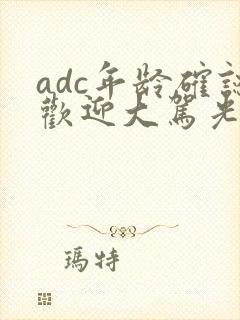 adc年龄確認
歡迎大駕光
瑪特